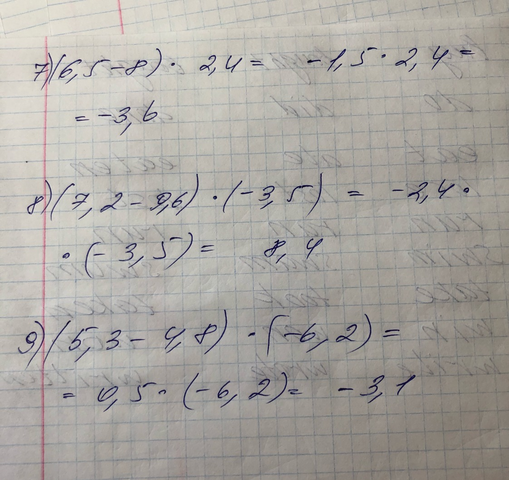 7) (6,5-8) · 2,4 = -1,5 · 2,4 =
= -3,6
8) (7,2-9,6) · (-3,5) = -2,4 ·
· (-3,5) = 8,4
9) (5,3-4,8) · (-6,2) =
= 0,5 · (-6,2) = -3,1